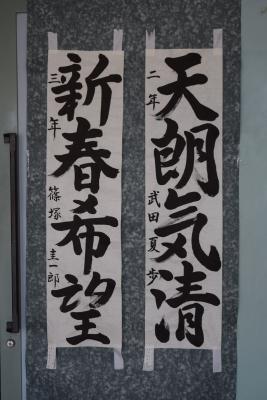 天朗気清
二年 武田夏歩
新春希望
三年 篠塚圭一郎